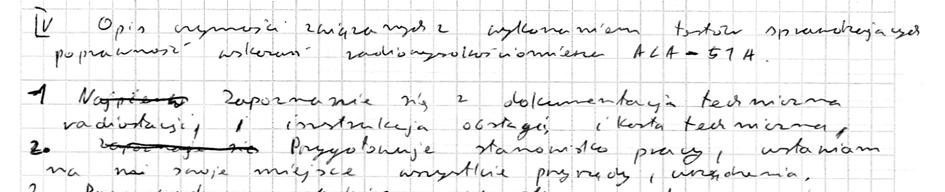 IV Opis czynności związanych z wykonaniem testów sprawdzających
poprawność wskazań radiowysokościomierza ALA-51A.
1 Zapoznanie się z dokumentacja techniczna
radiostacji, i instrukcja obsługi, i karta techniczna,
2. Przygotowuje stanowisko pracy, ustawiam
na nie swoje miejsce wszystkie przyrządy, urządzenia.